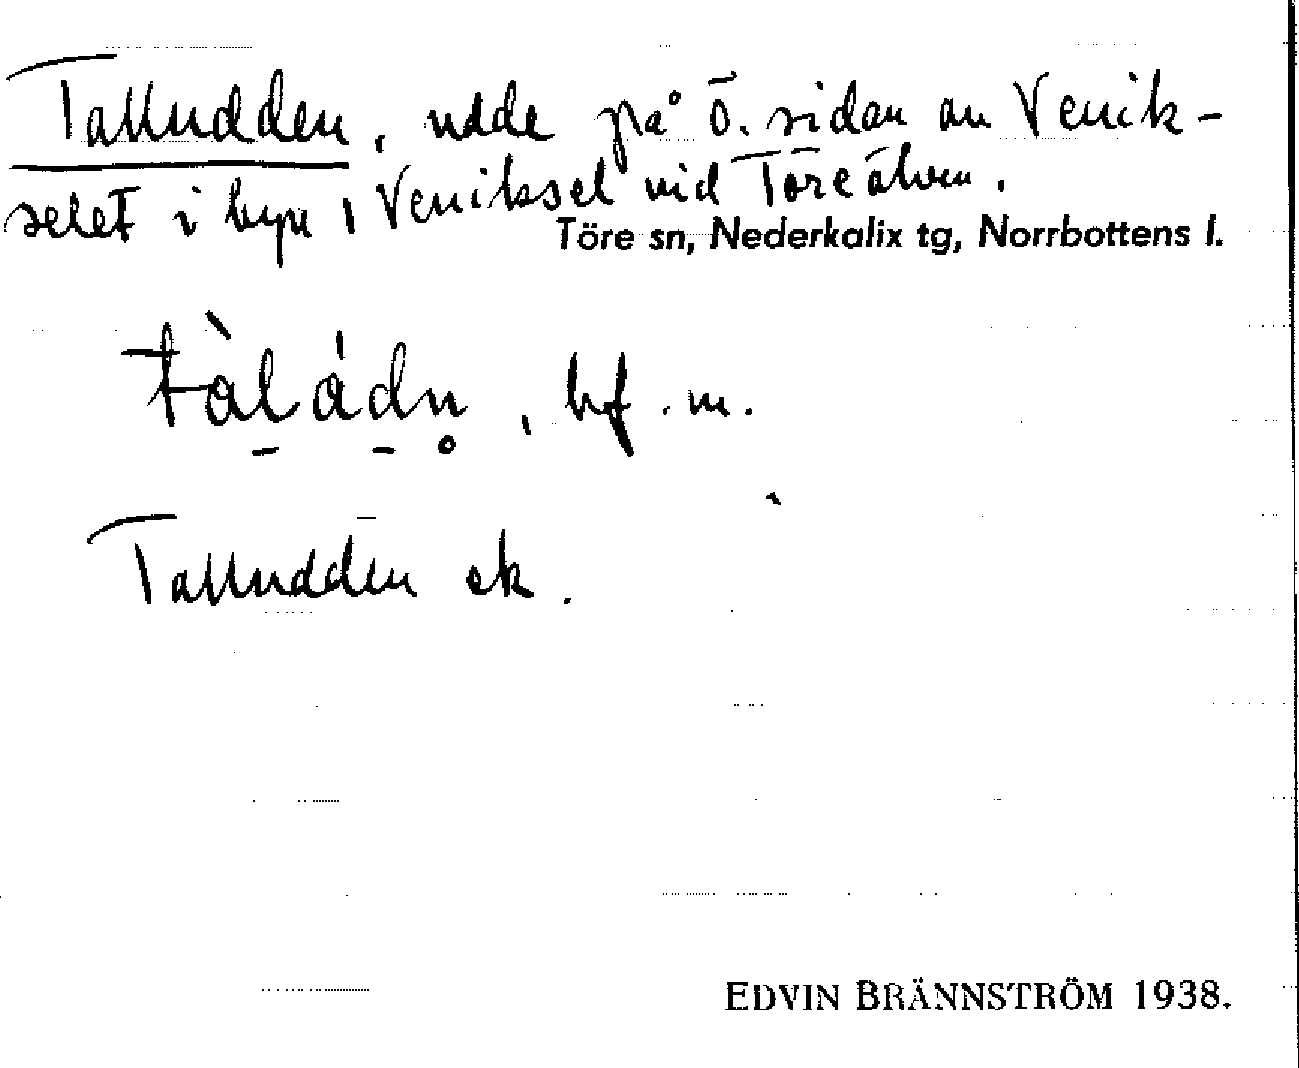 Talludden, udde på ö. sidan av Venik-
selet i byn Veniksel vid Töreälven.
Töre sn, Nederkalix tg, Norrbottens l.
tàl̠ád̠n̥, bf. m.
Talludden ek.
EDVIN BRÄNNSTRÖM 1938.